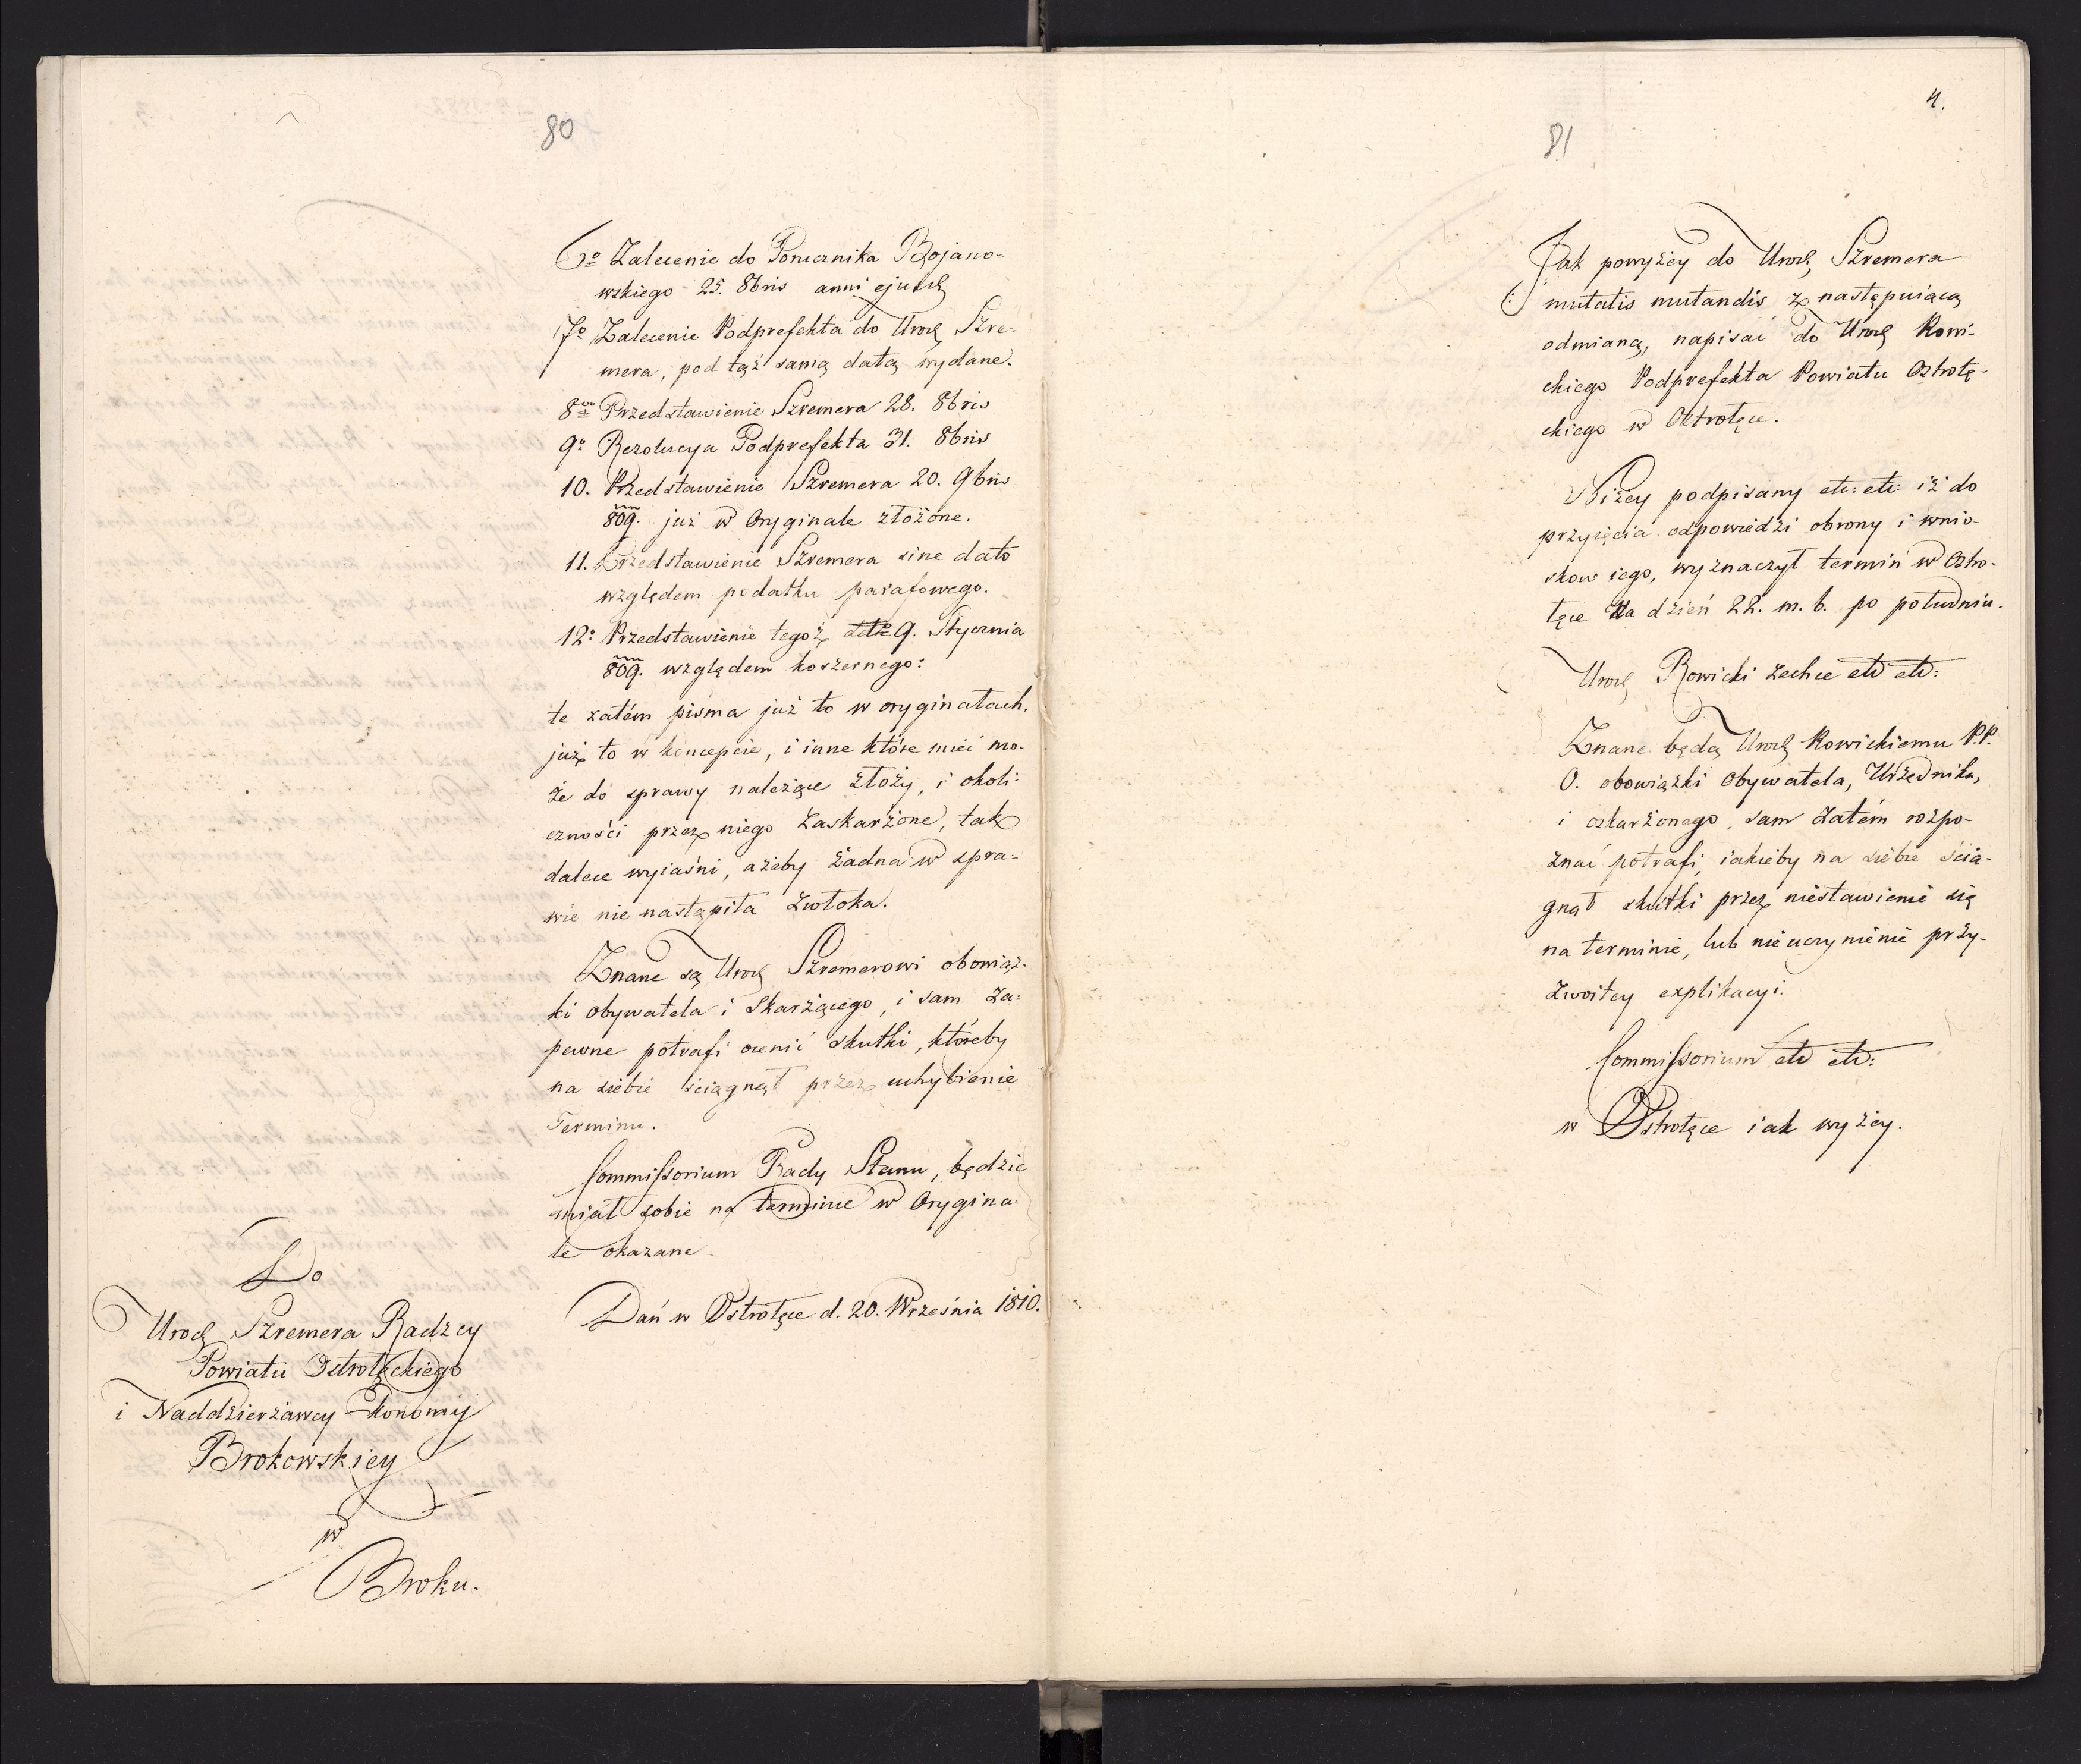 80
6o Zalecenie do Porucznika Bojano=
wskiego 25. 8bris anni ejusd
7o Zalecenie Podprefekta do Urodz Szre=
mera, pod tąż samą datą wydane.
8vo Przedstawienie Szremera 28. 8bris
9o Rezolucya Podprefekta 31. 8bris
10. Przedstawienie Szremera 20. 9bris
809. już w Oryginale złożone.
11. Przedstawienie Szremera sine dato
względem podatku parafowego.
12o Przedstawienie tegoż 9. Stycznia
809. względem koszernego:
te zatém pisma już to w oryginałach,
już to w koncepcie, i inne które mieć mo-
że do sprawy należące złoży, i okoli=
czności przez niego zaskarżone, tak
dalece wyiaśni, ażeby żadna w spra=
wie nie nastąpiła zwłoka.
Znane są Urodz Szremerowi obowiąz-
ki obywatela i Skarżącego, i sam za=
pewne potrafi ocenić skutki, któreby
na siebie ściągnął przez uchybienie
Terminu.
Commissorium Rady Stanu, będzie
miał sobie na terminie w Orygina=
le okazane
Dań w Ostrołęce d. 20. Września 1810.
Do
Urodz Szremera Radzcy
Powiatu Ostrołęckiego
i Naddzierżawcy Ekonomij
Brokowskiey
w
Broku.
4.
81
Jak powyżey do Urodz Szremera
mutatis mutandis z następuiącą
odmianą, napisać do Urodz Rowi-
ckiego Podprefekta Powiatu Ostrołę-
ckiego w Ostrołęce.
Niżey podpisany etc: etc: iż do
przyięcia odpowiedzi obrony i wnio-
skow iego, wyznaczył termin w Ostro-
łęce na dzień 22. m. b. po południu.
Urodz Rowicki zechce etc etc:
Znane będą Urodz Rowickiemu P.P.
O. obowiązki Obywatela, Urzędnika,
i oskarżonego, sam zatém rozpo-
znać potrafi, iakieby na siebie ścią-
gnął skutki przez niestawienie się
na terminie, lub nieuczynienie przy-
zwoitey explikacyi.
Commissorium etc etc:
w Ostrołęce iak wyżey.